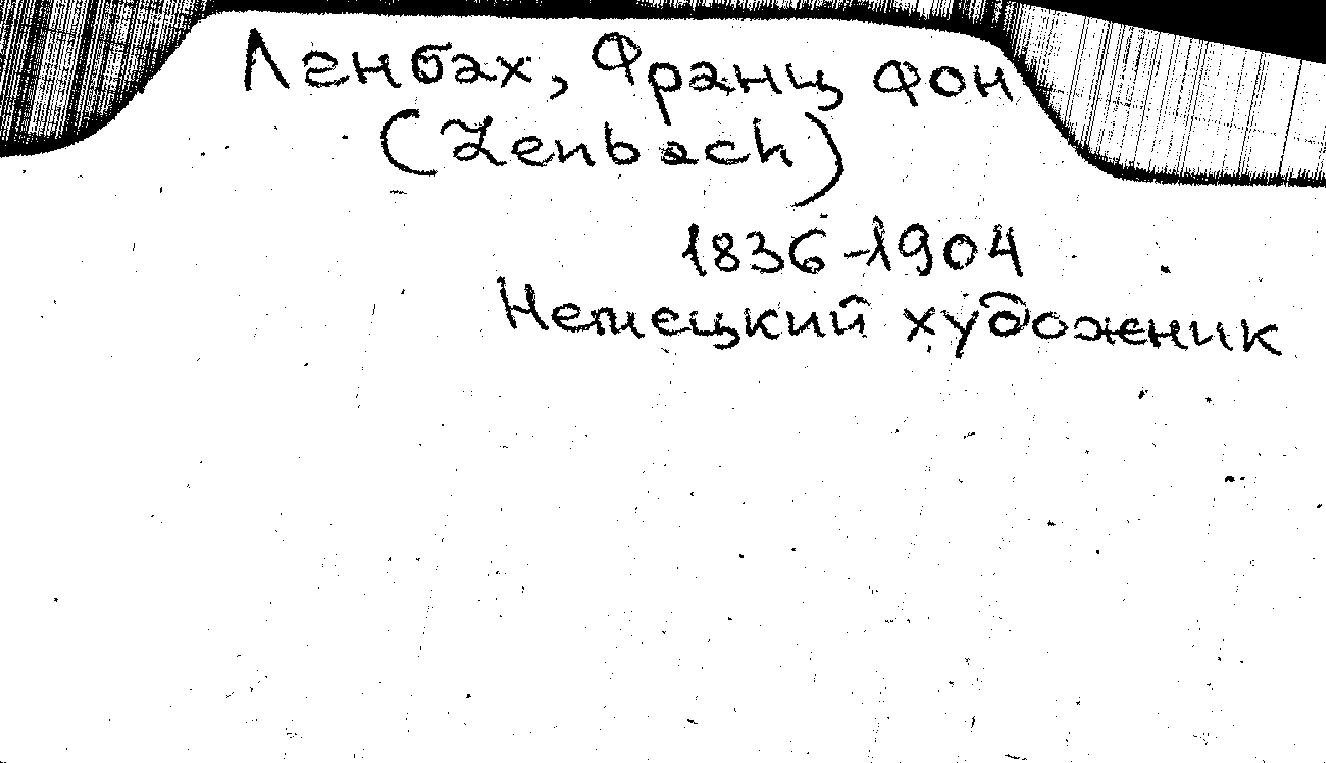 Ленбах, Франц фон
(Lenbach)
1836-1904
Немецкий художник